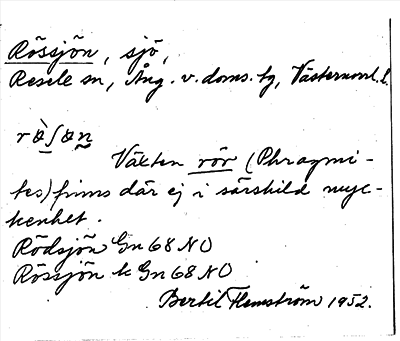 Rössjön, sjö,
Resele sn, Ång. v. doms. tg, Västernorrl. l.
Växten rör (Phragmi-
tes) finns där ej i särskild myc-
kenhet.
Rödsjön Gn 68 NO
Rössjön k Gn 68 NO
Bertil Flemström 1952.